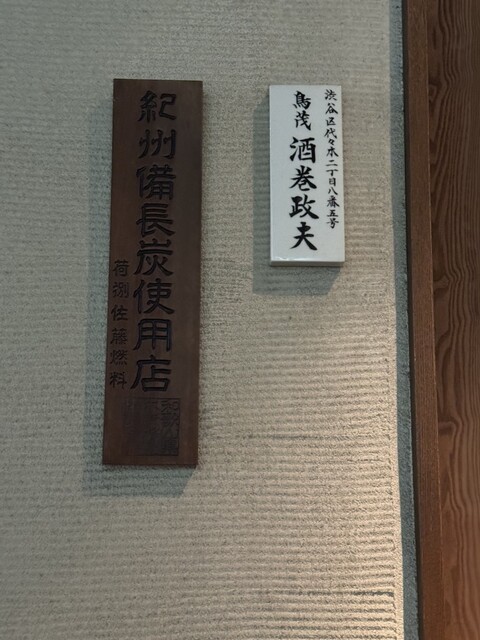 渋谷区代々木二丁目八番五号
鳥茂 酒巻政夫
紀州備長炭使用店
荷捌佐藤燃料